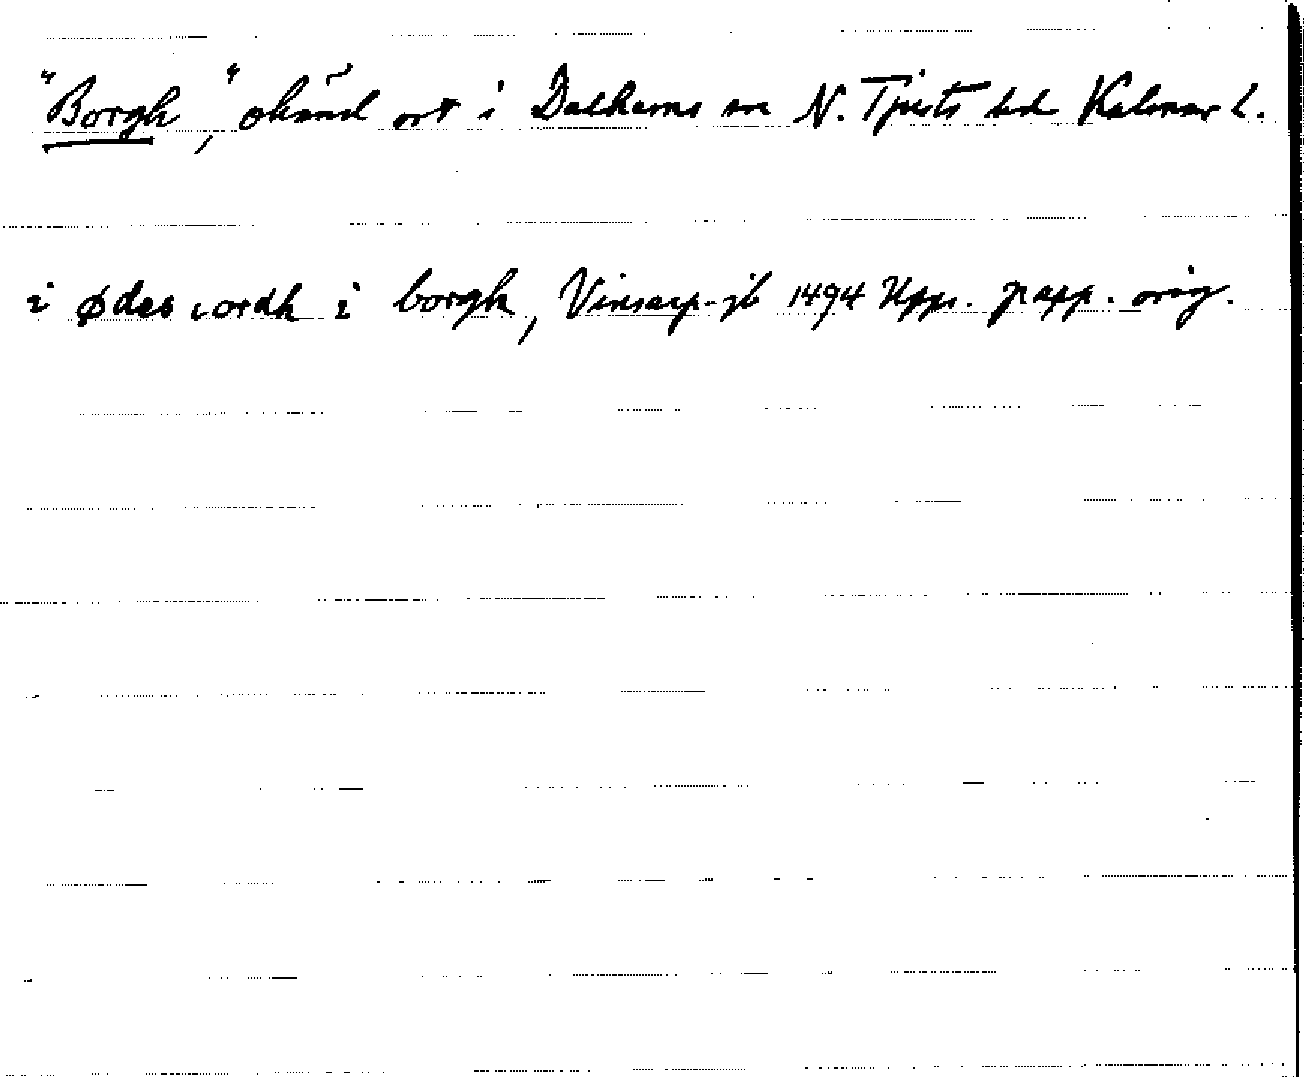 "Borgh", okänd ort i Dalhems sn N. Tjusts hd Kalmar l.
i ødes iordh i borgh, Vinsarp-jb 1494 Upps. papp. orig.